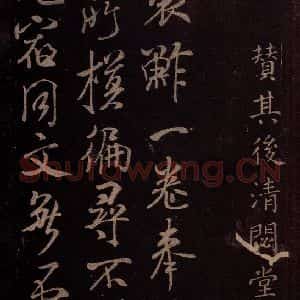 贊其後清閟堂
裹鮓一卷奉
所模偏尋不
同文
Shufawang.CN